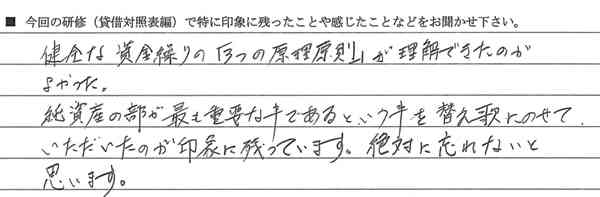 ■ 今回の研修（貸借対照表編）で特に印象に残ったことや感じたことなどをお聞かせ下さい。
健全な資金繰りの「3つの原理原則」が理解できたのが
よかった。
純資産の部が最も重要な事であるという事を替え歌にのせて
いただいたのが印象に残っています。絶対に忘れないと
思います。